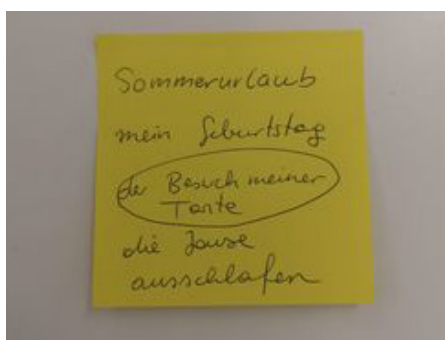 Sommerurlaub
mein Geburtstag
der Besuch meiner
Tante
die Jause
ausschlafen